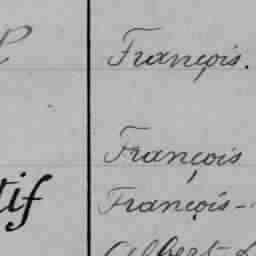 François.
François
tif
François -
Albert